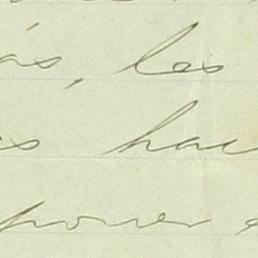 ás, les
s hac
poner e